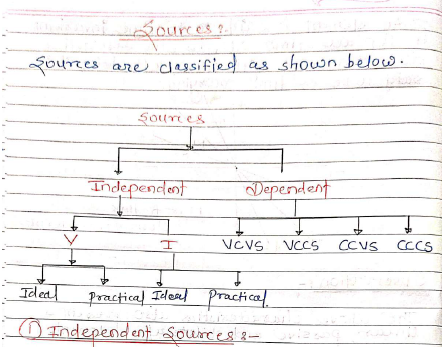 Sources :-
Sources are classified as shown below.
Sources
Independent Dependent
V I VCVS VCCS CCVS CCCS
Ideal practical Ideal practical.
① Independent Sources :-